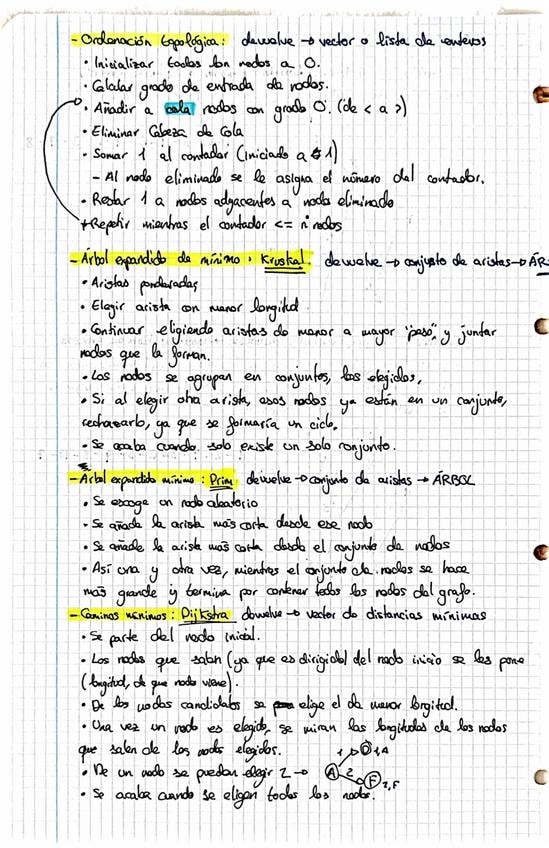 - Ordenación topológica: devuelve → vector o lista de enteros
• Inicializar todos los nodos a 0.
• Calcular grado de entrada de nodos.
• Añadir a cola nodos con grado 0. (de < a >)
• Eliminar Cabeza de Cola
• Sumar 1 al contador (iniciado a 1)
- Al nodo eliminado se le asigna el número del contador.
• Restar 1 a nodos adyacentes a nodo eliminado
* Repetir mientras el contador <= nº nodos
- Árbol expandido de mínimo: Kruskal. devuelve → conjunto de aristas → ÁR
• Aristas ponderadas
• Elegir arista con menor longitud
• Continuar eligiendo aristas de menor a mayor "peso", y juntar
nodos que la forman.
• Los nodos se agrupan en conjuntos, los elegidos,
• Si al elegir otra arista, esos nodos ya están en un conjunto,
rechazarlo, ya que se formaría un ciclo.
• Se acaba cuando solo existe un solo conjunto.
- Árbol expandido mínimo: Prim devuelve → conjunto de aristas → ÁRBOL
• Se escoge un nodo aleatorio
• Se añade la arista más corta desde ese nodo
• Se añade la arista más corta desde el conjunto de nodos
• Así una y otra vez, mientras el conjunto de nodos se hace
más grande y termina por contener todos los nodos del grafo.
- Caminos mínimos: Dijkstra devuelve → vector de distancias mínimas
• Se parte del nodo inicial.
• Los nodos que salen (ya que es dirigido) del nodo inicio se les pone
(longitud, de que nodo viene).
• De los nodos candidatos se elige el de menor longitud.
• Una vez un nodo es elegido, se miran las longitudes de los nodos
que salen de los nodos elegidos.
• De un nodo se pueden elegir 2 → A 1 D 1,A 2 F 2,F
• Se acaba cuando se eligen todos los nodos.